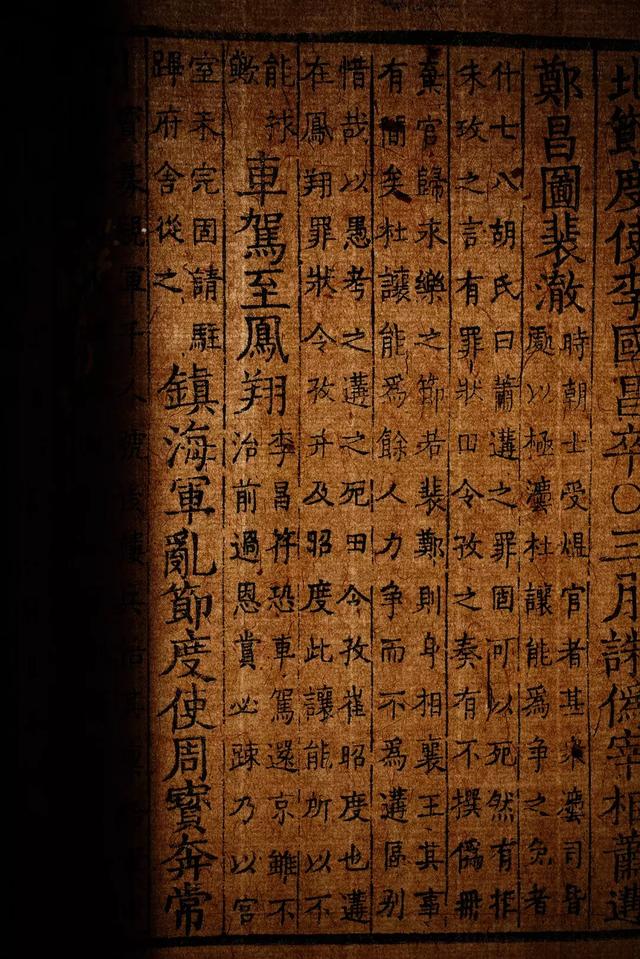 北節度使李國昌卒○三月誅僞宰相蕭遘
鄭昌圖裴澈
時朝士受熅官者甚衆灋司皆
處以極灋杜讓能爲争之免者
什七八胡氏曰蕭遘之罪固可以死然有拒
朱玫之言有罪狀田令孜之奏有不撰僞冊
棄官歸永樂之節若裴鄭則身相襄王其事
有間矣杜讓能爲餘人力争而不爲遘區别
惜哉以愚考之遘之死田令孜崔昭度也遘
在鳳翔罪狀令孜并及昭度此讓能所以不
能救
歟
車駕至鳳翔
李昌符恐車駕還京雖不
治前過恩賞必踈乃以宮
室未完固請駐
蹕府舍從之
鎮海軍亂節度使周寶奔常
寶募親軍千人號後樓兵